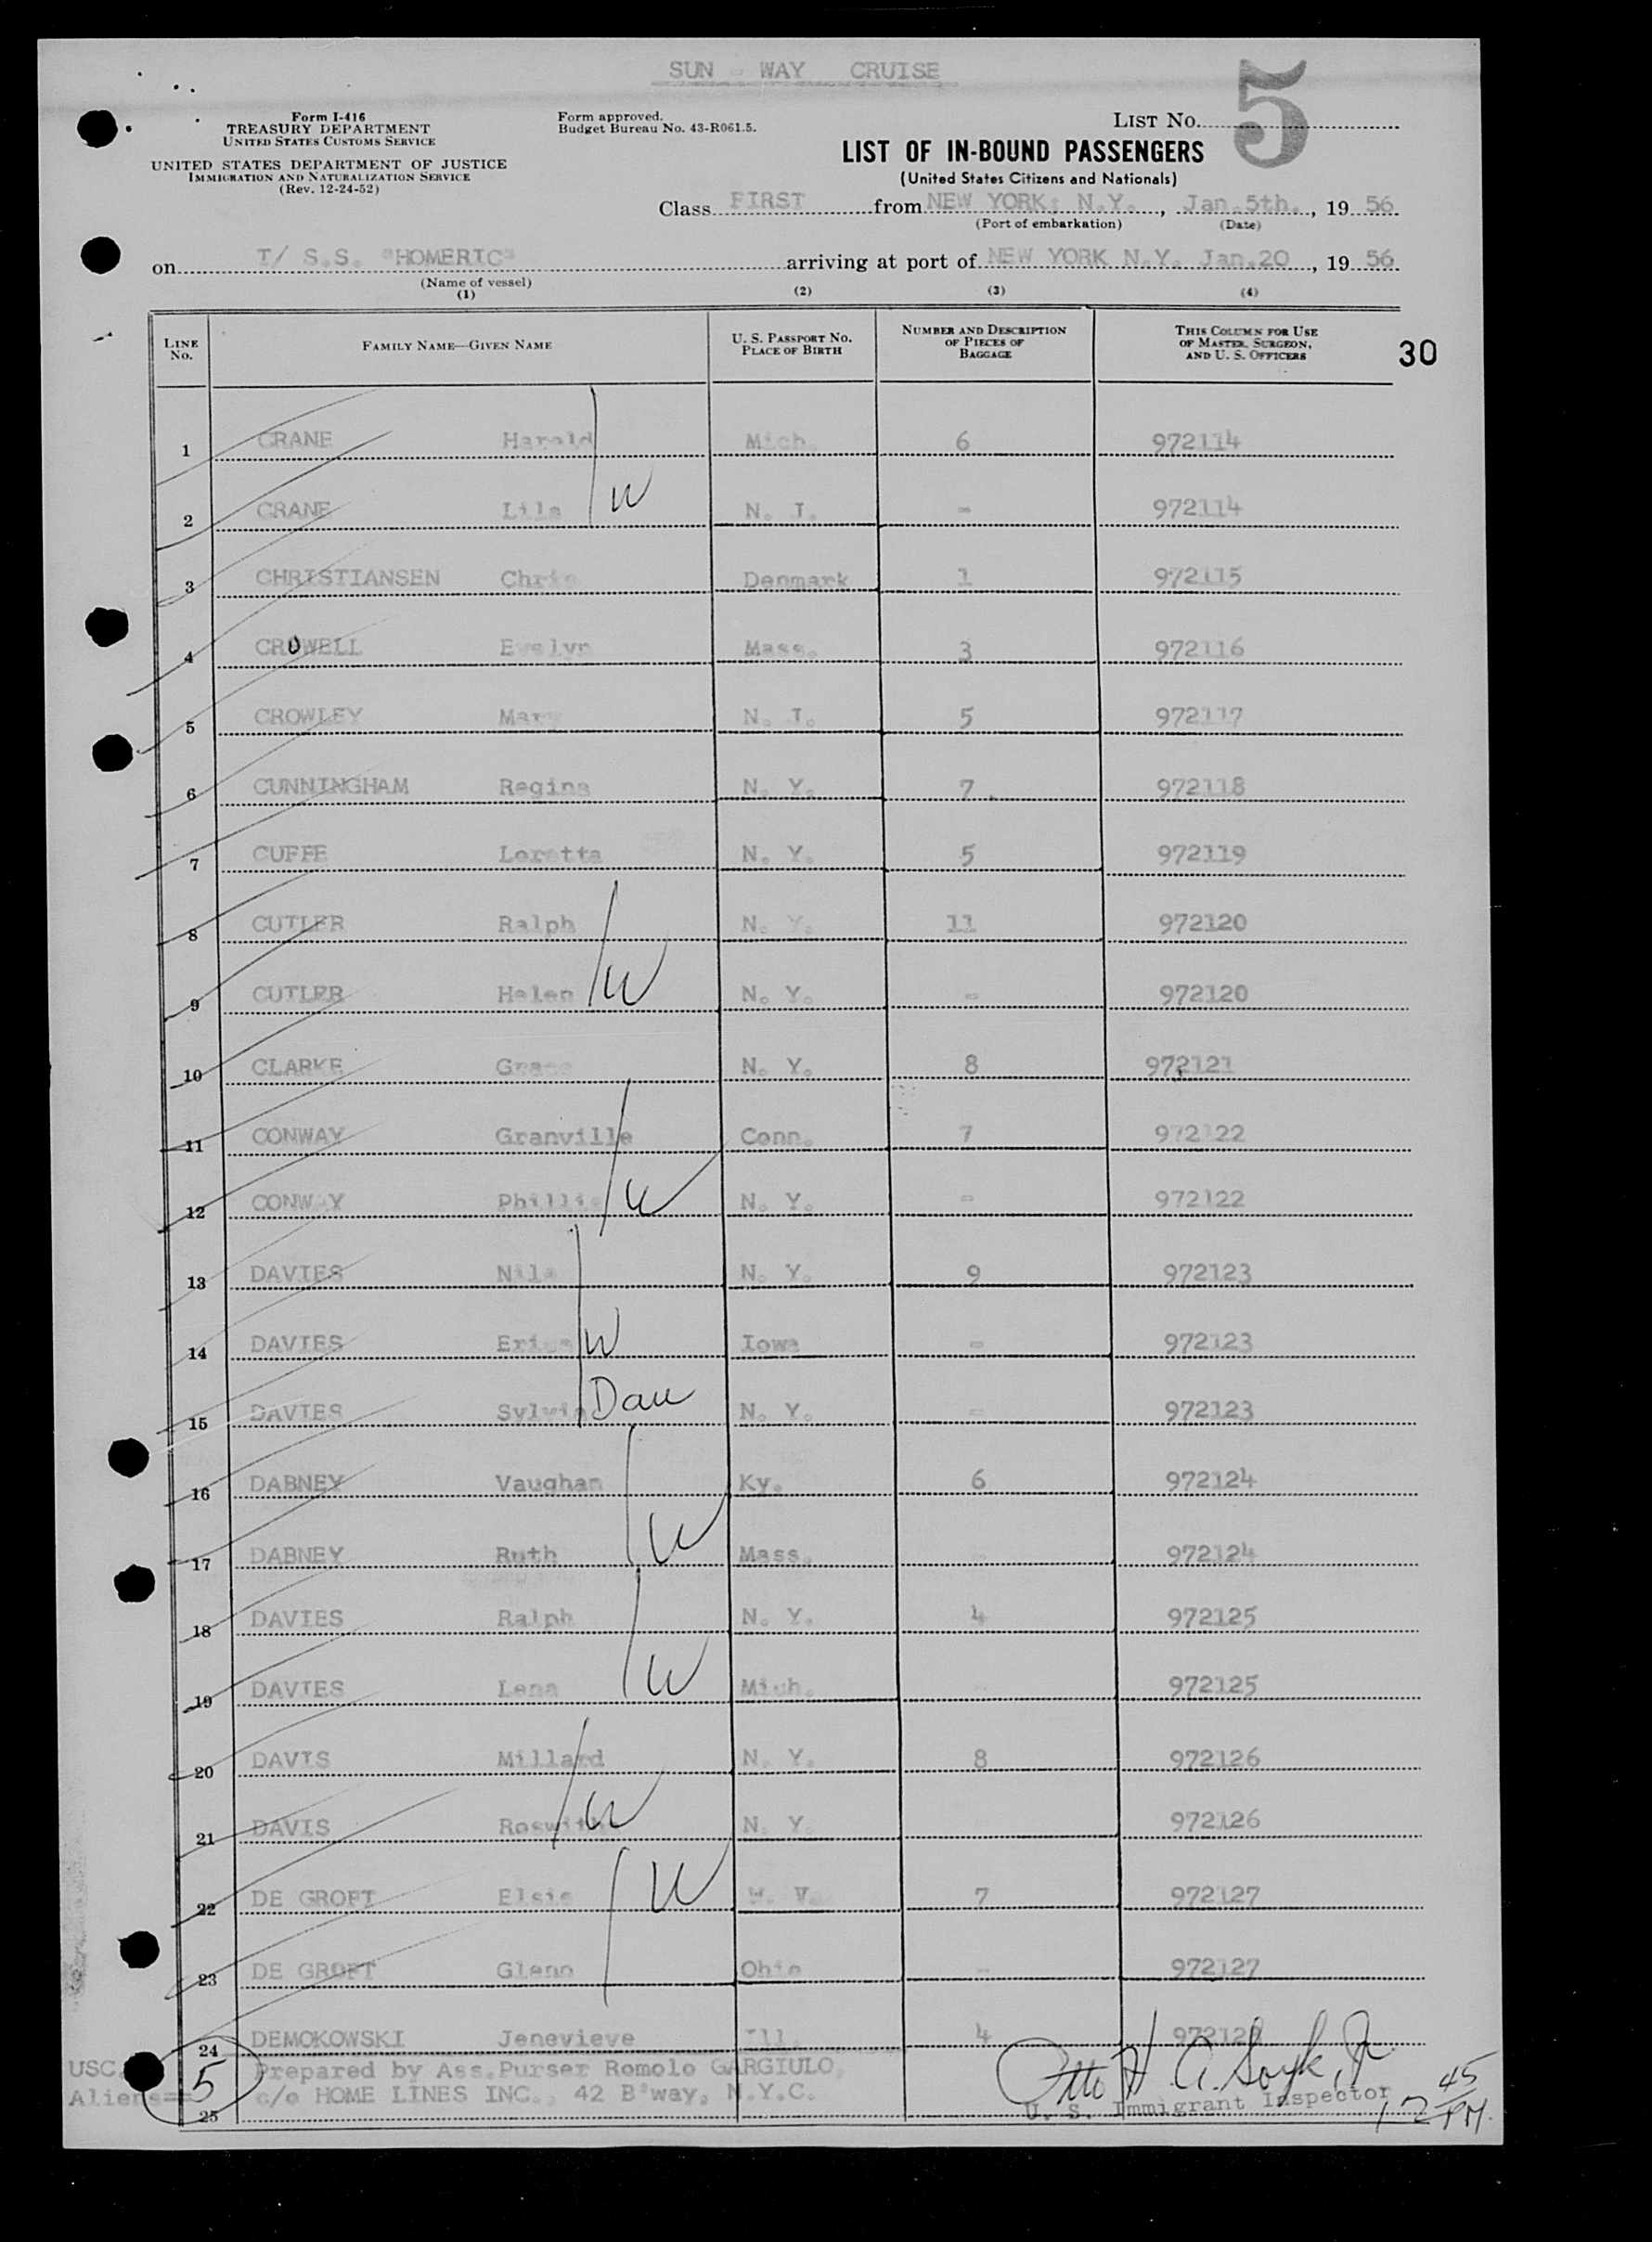 SUN - WAY CRUISE
5
Form I-416
TREASURY DEPARTMENT
UNITED STATES CUSTOMS SERVICE
UNITED STATES DEPARTMENT OF JUSTICE
IMMIGRATION AND NATURALIZATION SERVICE
(Rev. 12-24-52)
Form approved.
Budget Bureau No. 43-R061.5.
LIST No.
LIST OF IN-BOUND PASSENGERS
(United States Citizens and Nationals)
Class FIRST from NEW YORK; N.Y., Jan.5th., 19 56
(Port of embarkation) (Date)
on T/ S.S. "HOMERIC" arriving at port of NEW YORK N.Y. Jan.20, 19 56
(Name of vessel)
(1) (2) (3) (4)
LINE No. FAMILY NAME—GIVEN NAME U. S. PASSPORT NO. PLACE OF BIRTH NUMBER AND DESCRIPTION OF PIECES OF BAGGAGE THIS COLUMN FOR USE OF MASTER, SURGEON, AND U. S. OFFICERS
30
1 CRANE Harold Mich. 6 972114
2 CRANE Lila W N. J. - 972114
3 CHRISTIANSEN Chris Denmark 1 972115
4 CROWELL Evelyn Mass. 3 972116
5 CROWLEY Mary N. J. 5 972117
6 CUNNINGHAM Regina N. Y. 7 972118
7 CUFFE Loretta N. Y. 5 972119
8 CUTLER Ralph N. Y. 11 972120
9 CUTLER Helen W N. Y. - 972120
10 CLARKE Grace N. Y. 8 972121
11 CONWAY Granville Conn. 7 972122
12 CONWAY Phillis W N. Y. - 972122
13 DAVIES Nils N. Y. 9 972123
14 DAVIES W Iowa - 972123
15 DAVIES Sylvia Dau N. Y. - 972123
16 DABNEY Vaughan Ky. 6 972124
17 DABNEY Ruth W Mass. - 972124
18 DAVIES Ralph N. Y. 4 972125
19 DAVIES Lena W Mich. - 972125
20 DAVIS Millard N. Y. 8 972126
21 DAVIS Roswitha W N. Y. 972126
22 DE GROFT Elsie W W. V. 7 972127
23 DE GROFT Glenn Ohio - 972127
24 DEMOKOWSKI Jenevieve Ill. 4 972128
USC. Prepared by Ass.Purser Romolo GARGIULO,
Aliens== 5 c/o HOME LINES INC., 42 B'way, N.Y.C.
25
U. S. Immigrant Inspector
45
PM